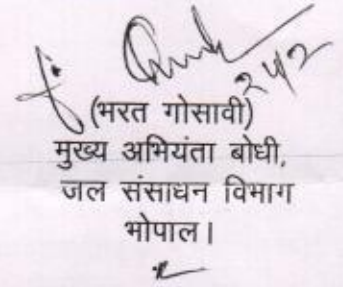 २४/२
(भरत गोसावी)
मुख्य अभियंता बोधी,
जल संसाधन विभाग
भोपाल।